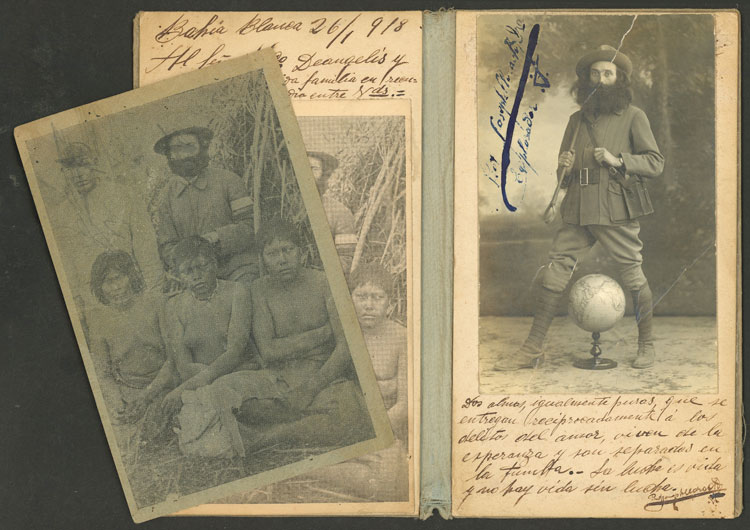 Bahía Blanca 26/1 918
Al Señor Deangelis y
familia en
entre Vds.=
Explorador
Dos almas, igualmente puras, que se
entregan reciprocadamente á los
delitos del amor, viven de la
esperanza y son separadas en
la tumba.- La lucha es vida
y no hay vida sin lucha.